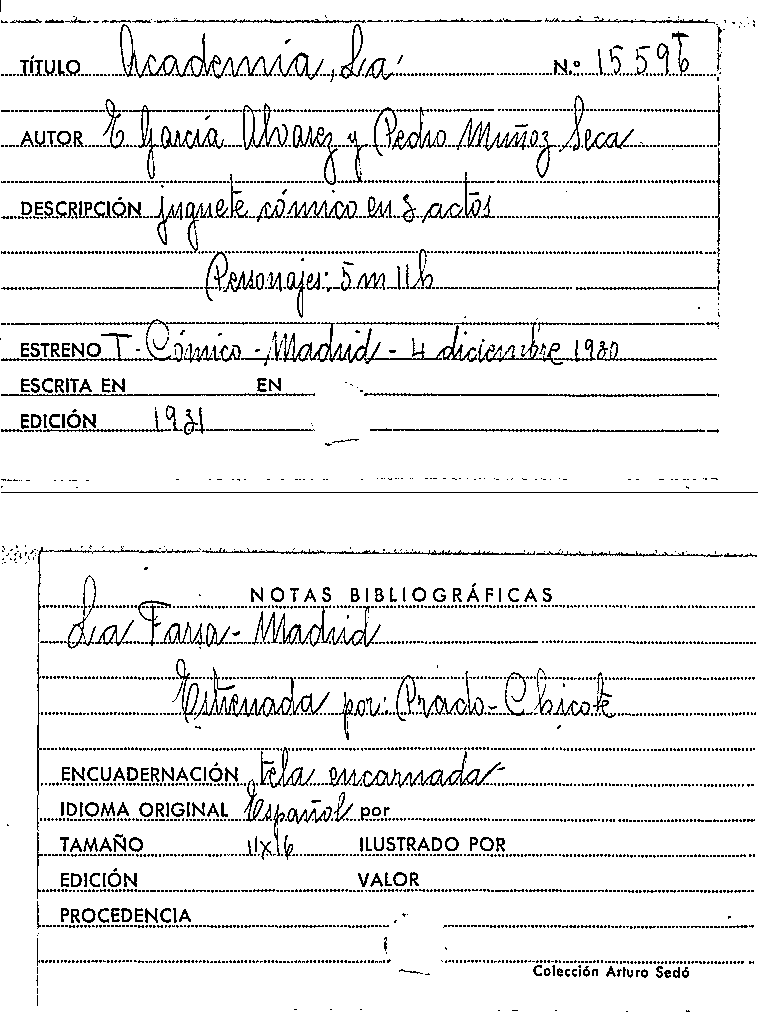 TÍTULO Academia, La N.º 15596
AUTOR E García Alvarez y Pedro Muñoz Seca
DESCRIPCIÓN juguete cómico en 3 actos
Personajes: 5 m 11 h
ESTRENO T. Cómico - Madrid - 4 diciembre 1930
ESCRITA EN EN
EDICIÓN 1931
NOTAS BIBLIOGRÁFICAS
La Farsa - Madrid
Estrenada por: Prado-Chicote
ENCUADERNACIÓN tela encarnada
IDIOMA ORIGINAL Español por
TAMAÑO 11x16 ILUSTRADO POR
EDICIÓN VALOR
PROCEDENCIA
Colección Arturo Sedó